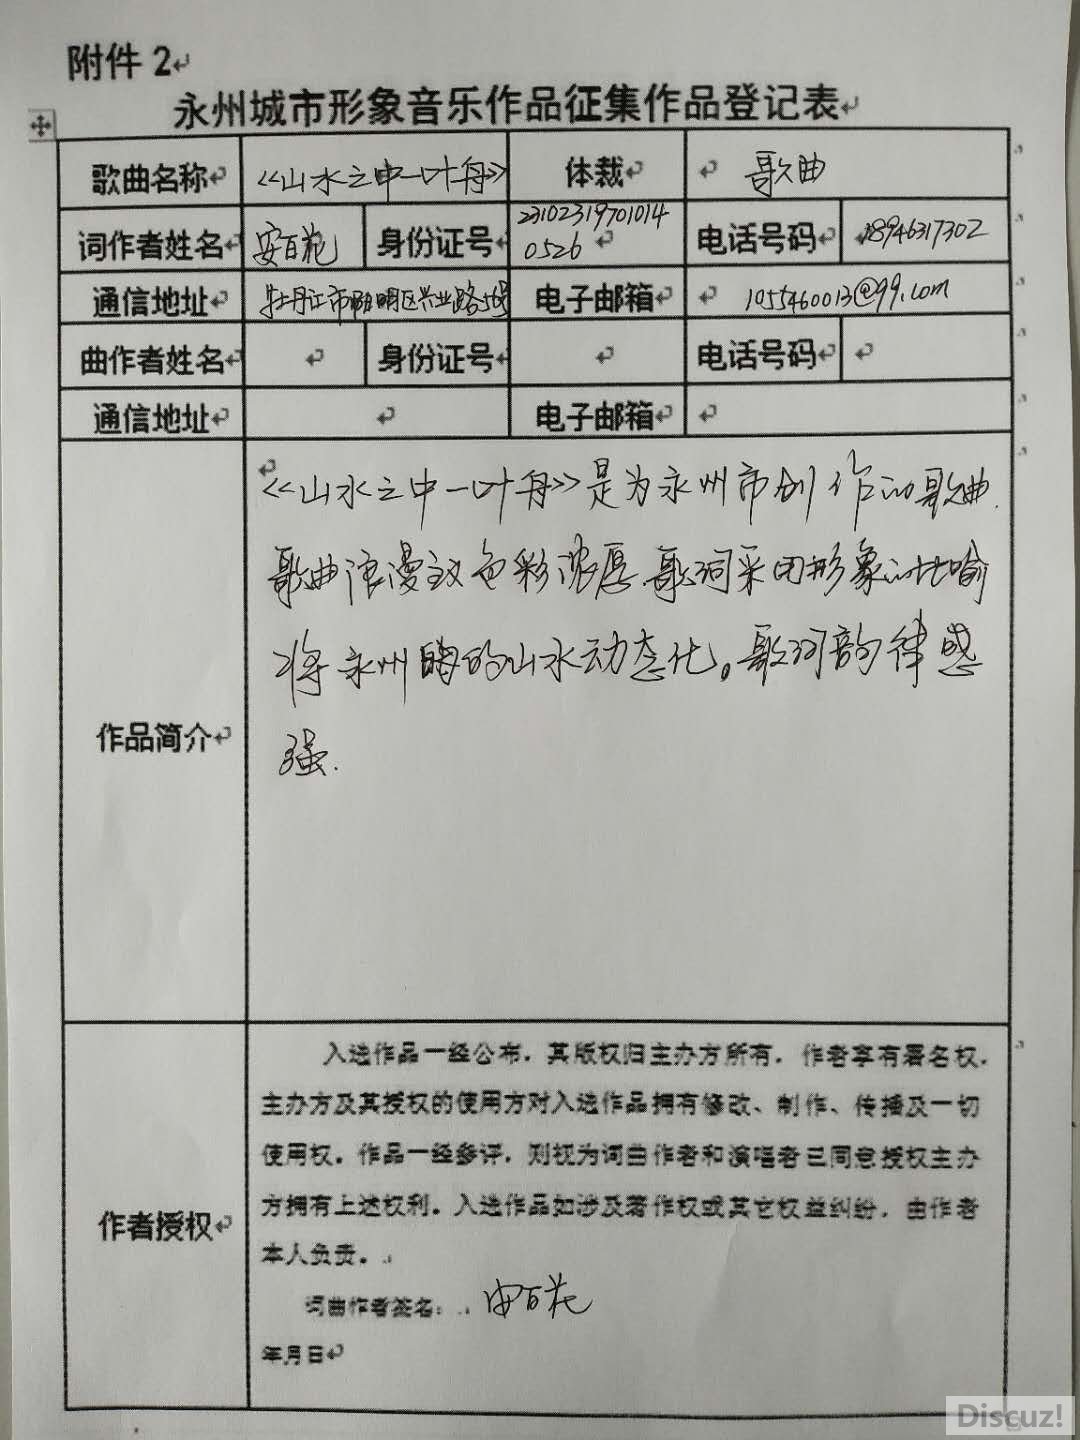 附件 2
永州城市形象音乐作品征集作品登记表
歌曲名称 《山水之中一叶舟》 体裁 歌曲
词作者姓名 安百花 身份证号 23102319701014 0526 电话号码 18946317302
通信地址 牡丹江市阳明区兴业路5号 电子邮箱 1055460013@qq.com
曲作者姓名 身份证号 电话号码
通信地址 电子邮箱
作品简介
《山水之中一叶舟》是为永州市创作的歌曲.
歌曲浪漫主义色彩浓厚.歌词采用形象的比喻
将永州的山水动态化。歌词韵律感
强.
作者授权
入选作品一经公布,其版权归主办方所有,作者享有署名权,
主办方及其授权的使用方对入选作品拥有修改、制作、传播及一切
使用权。作品一经参评,则视为词曲作者和演唱者已同意授权主办
方拥有上述权利。入选作品如涉及著作权或其它权益纠纷,由作者
本人负责。
词曲作者签名: 安百花
年月日
Discuz!